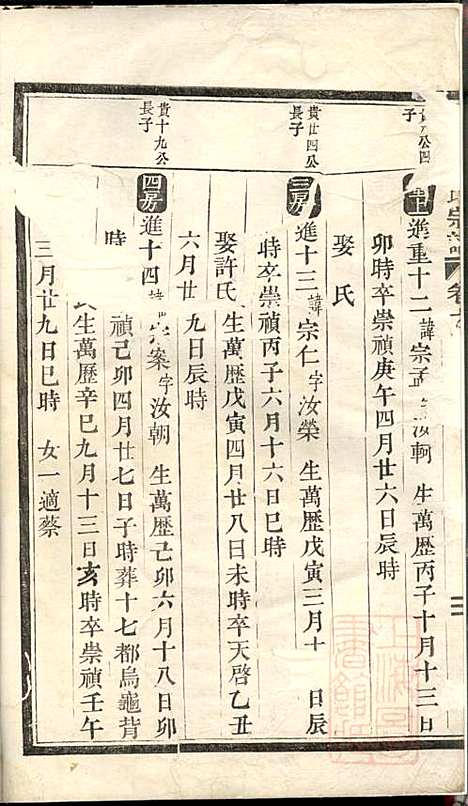 氏宗譜 卷
三
公四
子
進重十二諱宗孟字汝軻 生萬歷丙子十月十三日
卯時卒崇禎庚午四月廿六日辰時
娶 氏
貴廿四公
長子
三房進十三諱宗仁字汝榮 生萬歷戊寅三月十 日辰
時卒崇禎丙子六月十六日巳時
娶許氏生萬歷戊寅四月廿八日未時卒天啓乙丑
六月廿九日辰時
貴十九公
長子
四房進十四諱宗案字汝朝 生萬歷己卯六月十八日卯
時 禎己卯四月廿七日子時葬十七都烏龜背
生萬歷辛巳九月十三日亥時卒崇禎壬午
三月廿九日巳時 女一適蔡